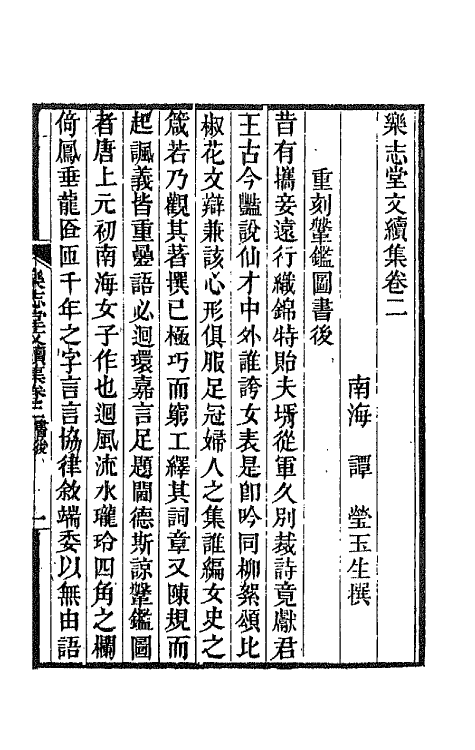 樂志堂文續集卷二
南海 譚 瑩玉生撰
重刻鞶鑑圖書後
昔有攜妾遠行織錦特貽夫壻從軍久別裁詩竟獻君
王古今豔說仙才中外誰誇女表是卽吟同柳絮頌比
椒花文辯兼該心形俱服足冠婦人之集誰編女史之
箴若乃觀其著撰已極巧而窮工繹其詞章又陳規而
起諷義皆重疊語必迴環嘉言足題閫德斯諒鞶鑑圖
者唐上元初南海女子作也迴風流水瓏玲四角之欄
倚鳳垂龍匼匝千年之字言言協律敘端委以無由語
樂志堂文續集卷二 書後 一